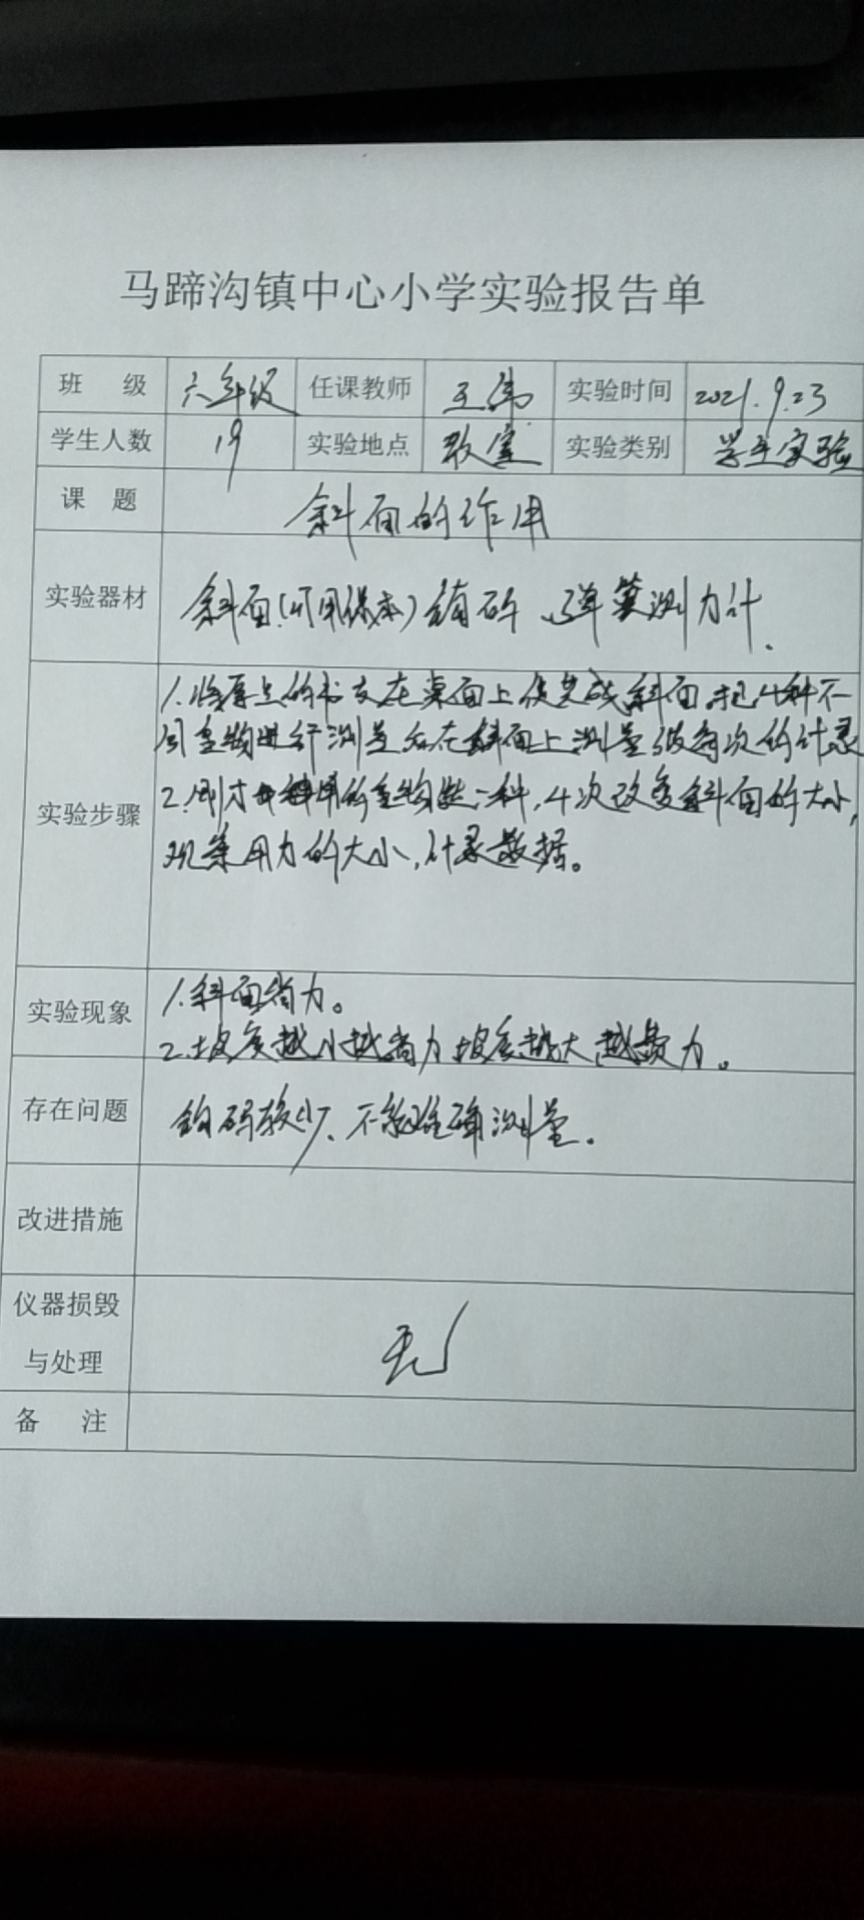 马蹄沟镇中心小学实验报告单
班 级 六年级 任课教师 王伟 实验时间 2021.9.23
学生人数 19 实验地点 教室 实验类别 学生实验
课 题 斜面的作用
实验器材 斜面(可用课本)钩砰、弹簧测力计.
1.将厚点的书支在桌面上使其成斜面,把4种不
同重物进行测量后在斜面上测量做每次的计录
实验步骤
2.刚才 的重物选一种,4次改变斜面的大小,
观察用力的大小,计录数据。
1.斜面省力。
实验现象
2.坡度越小越省力坡度越大越费力。
存在问题 钩码较少、不能准确测量。
改进措施
仪器损毁
与处理 无
备 注